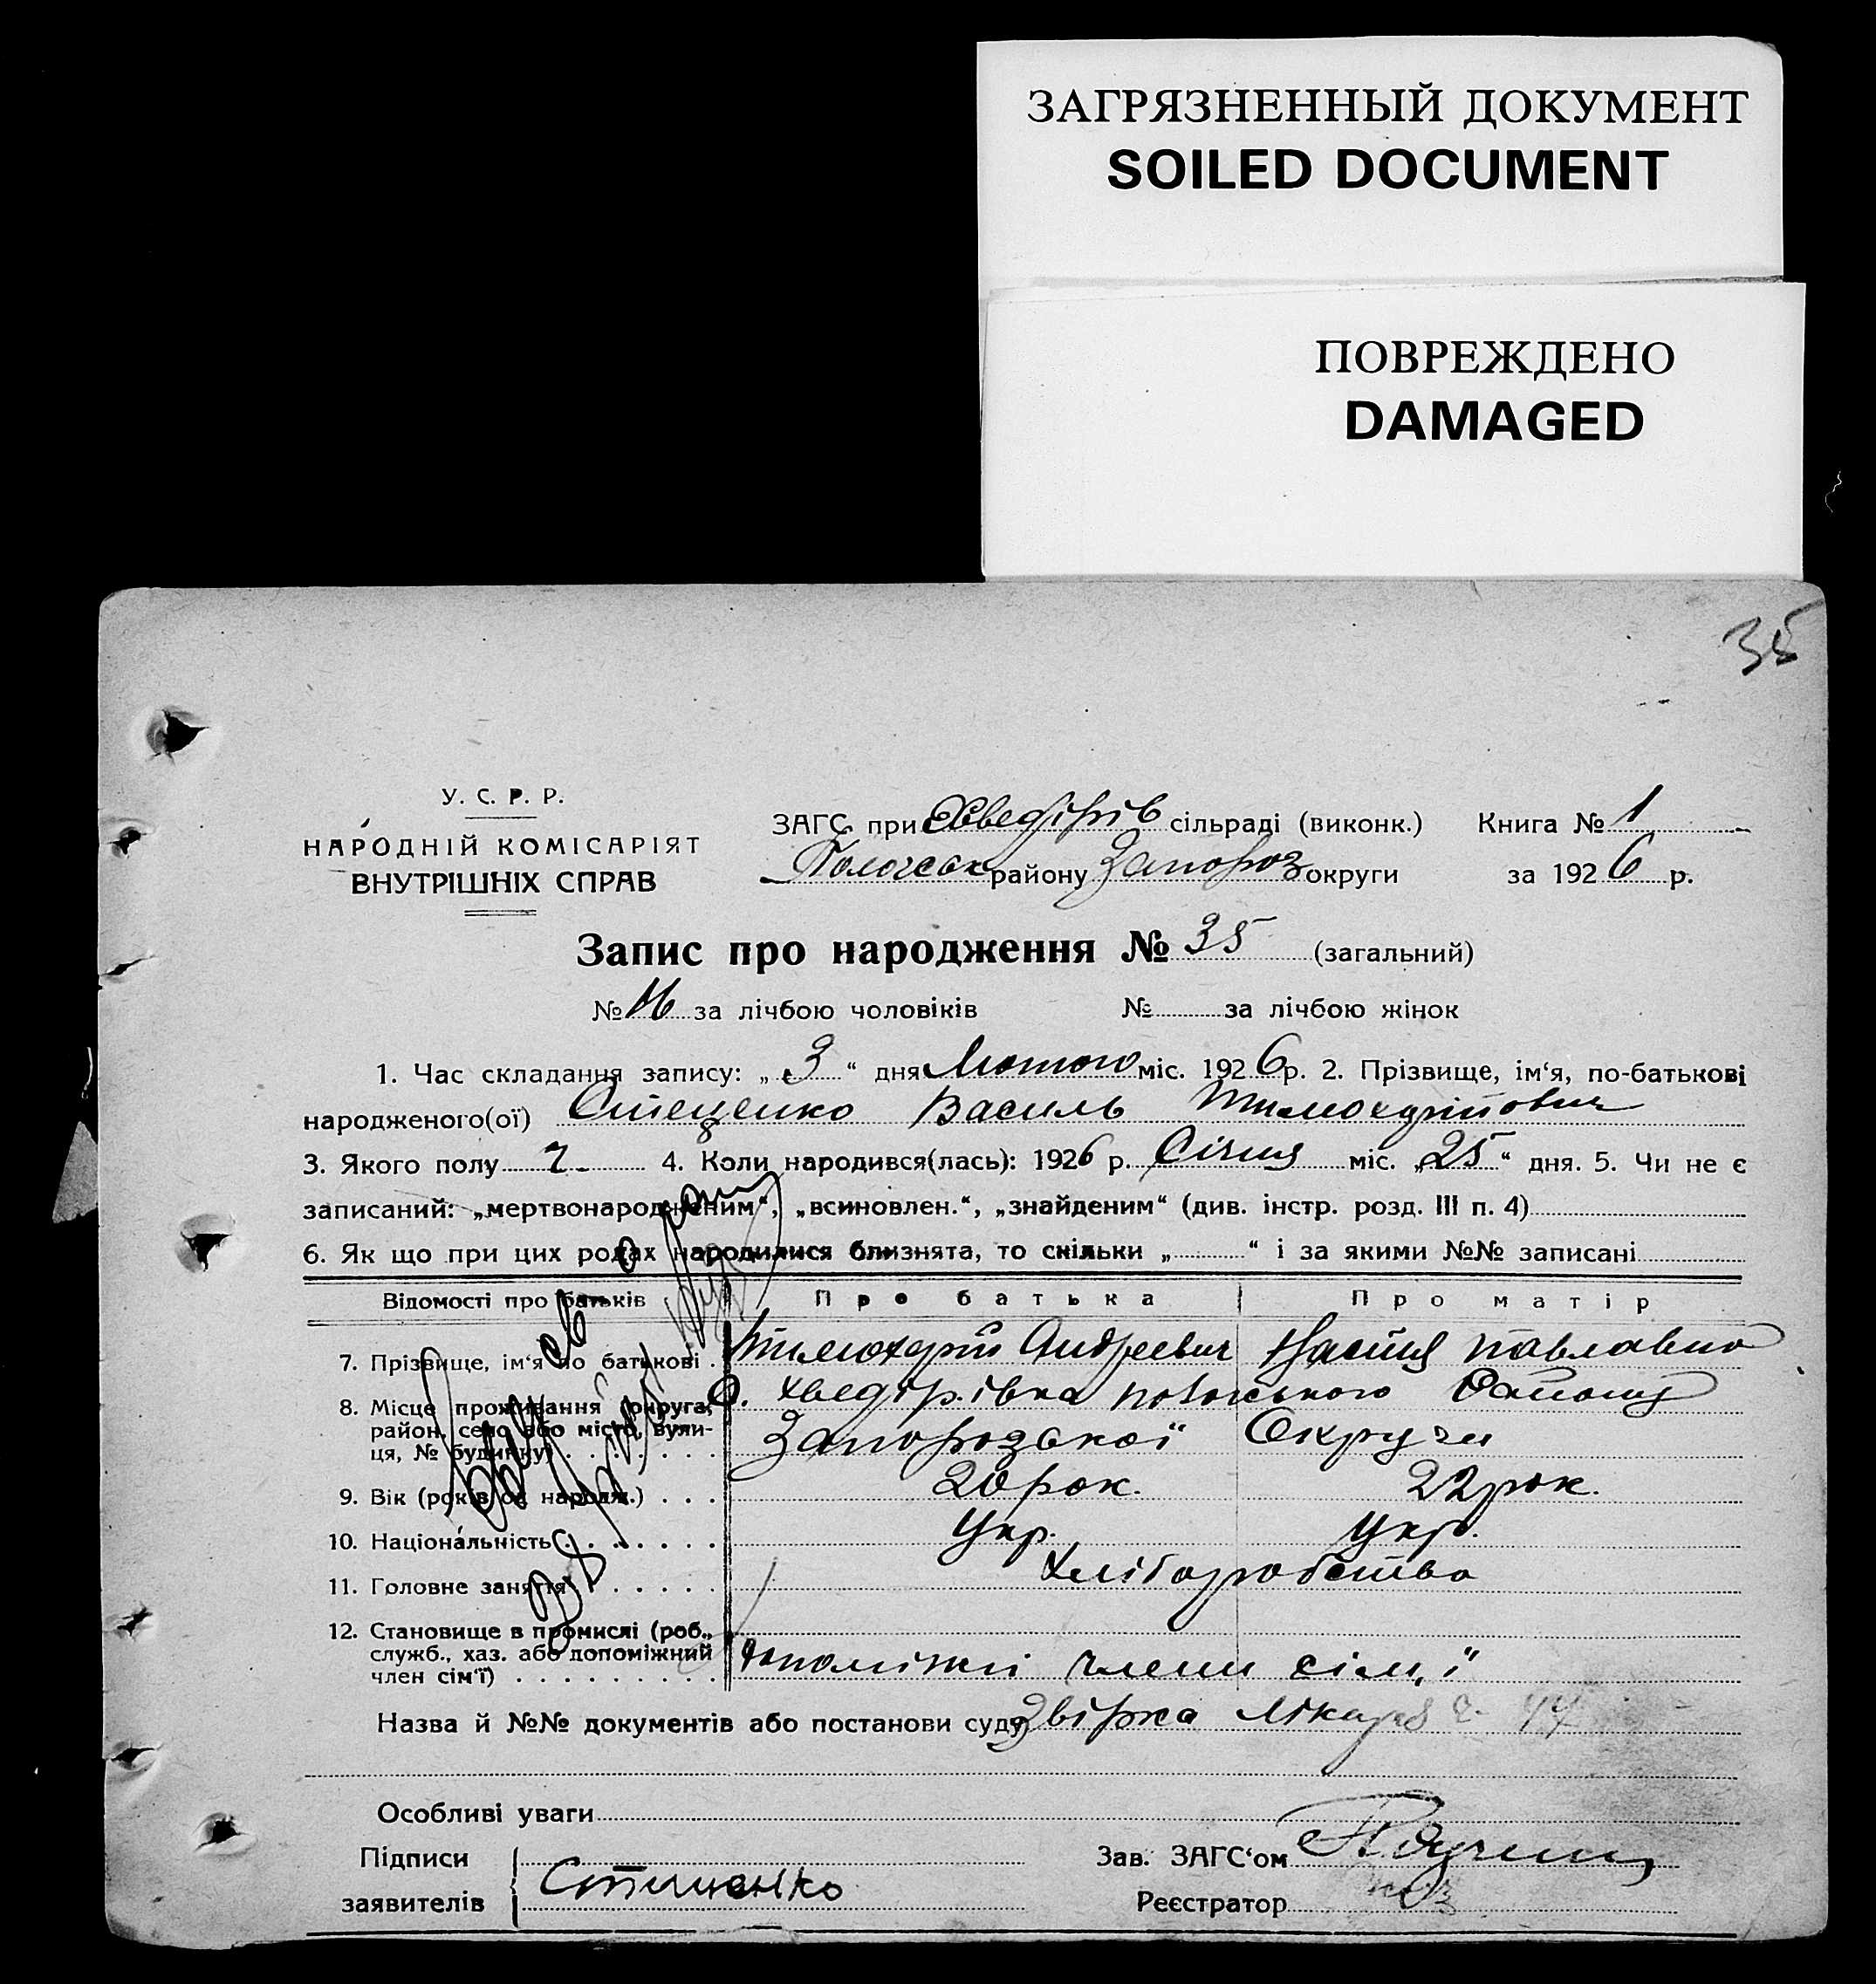 ЗАГРЯЗНЕННЫЙ ДОКУМЕНТ
SOILED DOCUMENT
ПОВРЕЖДЕНО
DAMAGED
35
У. С. Р. Р.
НАРОДНІЙ КОМІСАРІЯТ
ВНУТРІШНІХ СПРАВ
ЗАГС при Хведірів сільраді (виконк.) Книга № 1
Пологськ району Запороз округи за 1926 р.
Запис про народження № 35 (загальний)
№ 16 за лічбою чоловіків № за лічбою жінок
1. Час складання запису: „3“ дня Лютого міс. 1926 р. 2. Прізвище, ім‘я, по-батькові
народженого(ої) Стеценко Василь
3. Якого полу ч. 4. Коли народився(лась): 1926 р. Січня міс. „25“ дня. 5. Чи не є
записаний: „мертвонародженим“, „всиновлен.“, „знайденим“ (див. інстр. розд. III п. 4)
6. Як що при цих родах народилися близнята, то скільки „ “ і за якими №№ записані
Відомості про батьків Про батька Про матір
7. Прізвище, ім‘я по батькові . Тимохерій Андреевич Настя Павлавна
8. Місце проживання округа, С. Хведірівка Пологського Району
район, село або місто, вули-
ця, № будинку) . . . . . . . . Запорозької Округи
9. Вік (років од народж.) . . . 20 рок. 22 рок.
10. Національність . . . . . . . Укр. Укр.
11. Головне заняття . . . . . . Хліборобство
12. Становище в промислі (роб.,
служб., хаз. або допоміжний Допоміжні члени сім,ї
член сім‘ї) . . . . . . . . .
Назва й №№ документів або постанови суду Звірка Лікаря
Особливі уваги
Підписи Зав. ЗАГС‘ом
заявителів Реєстратор